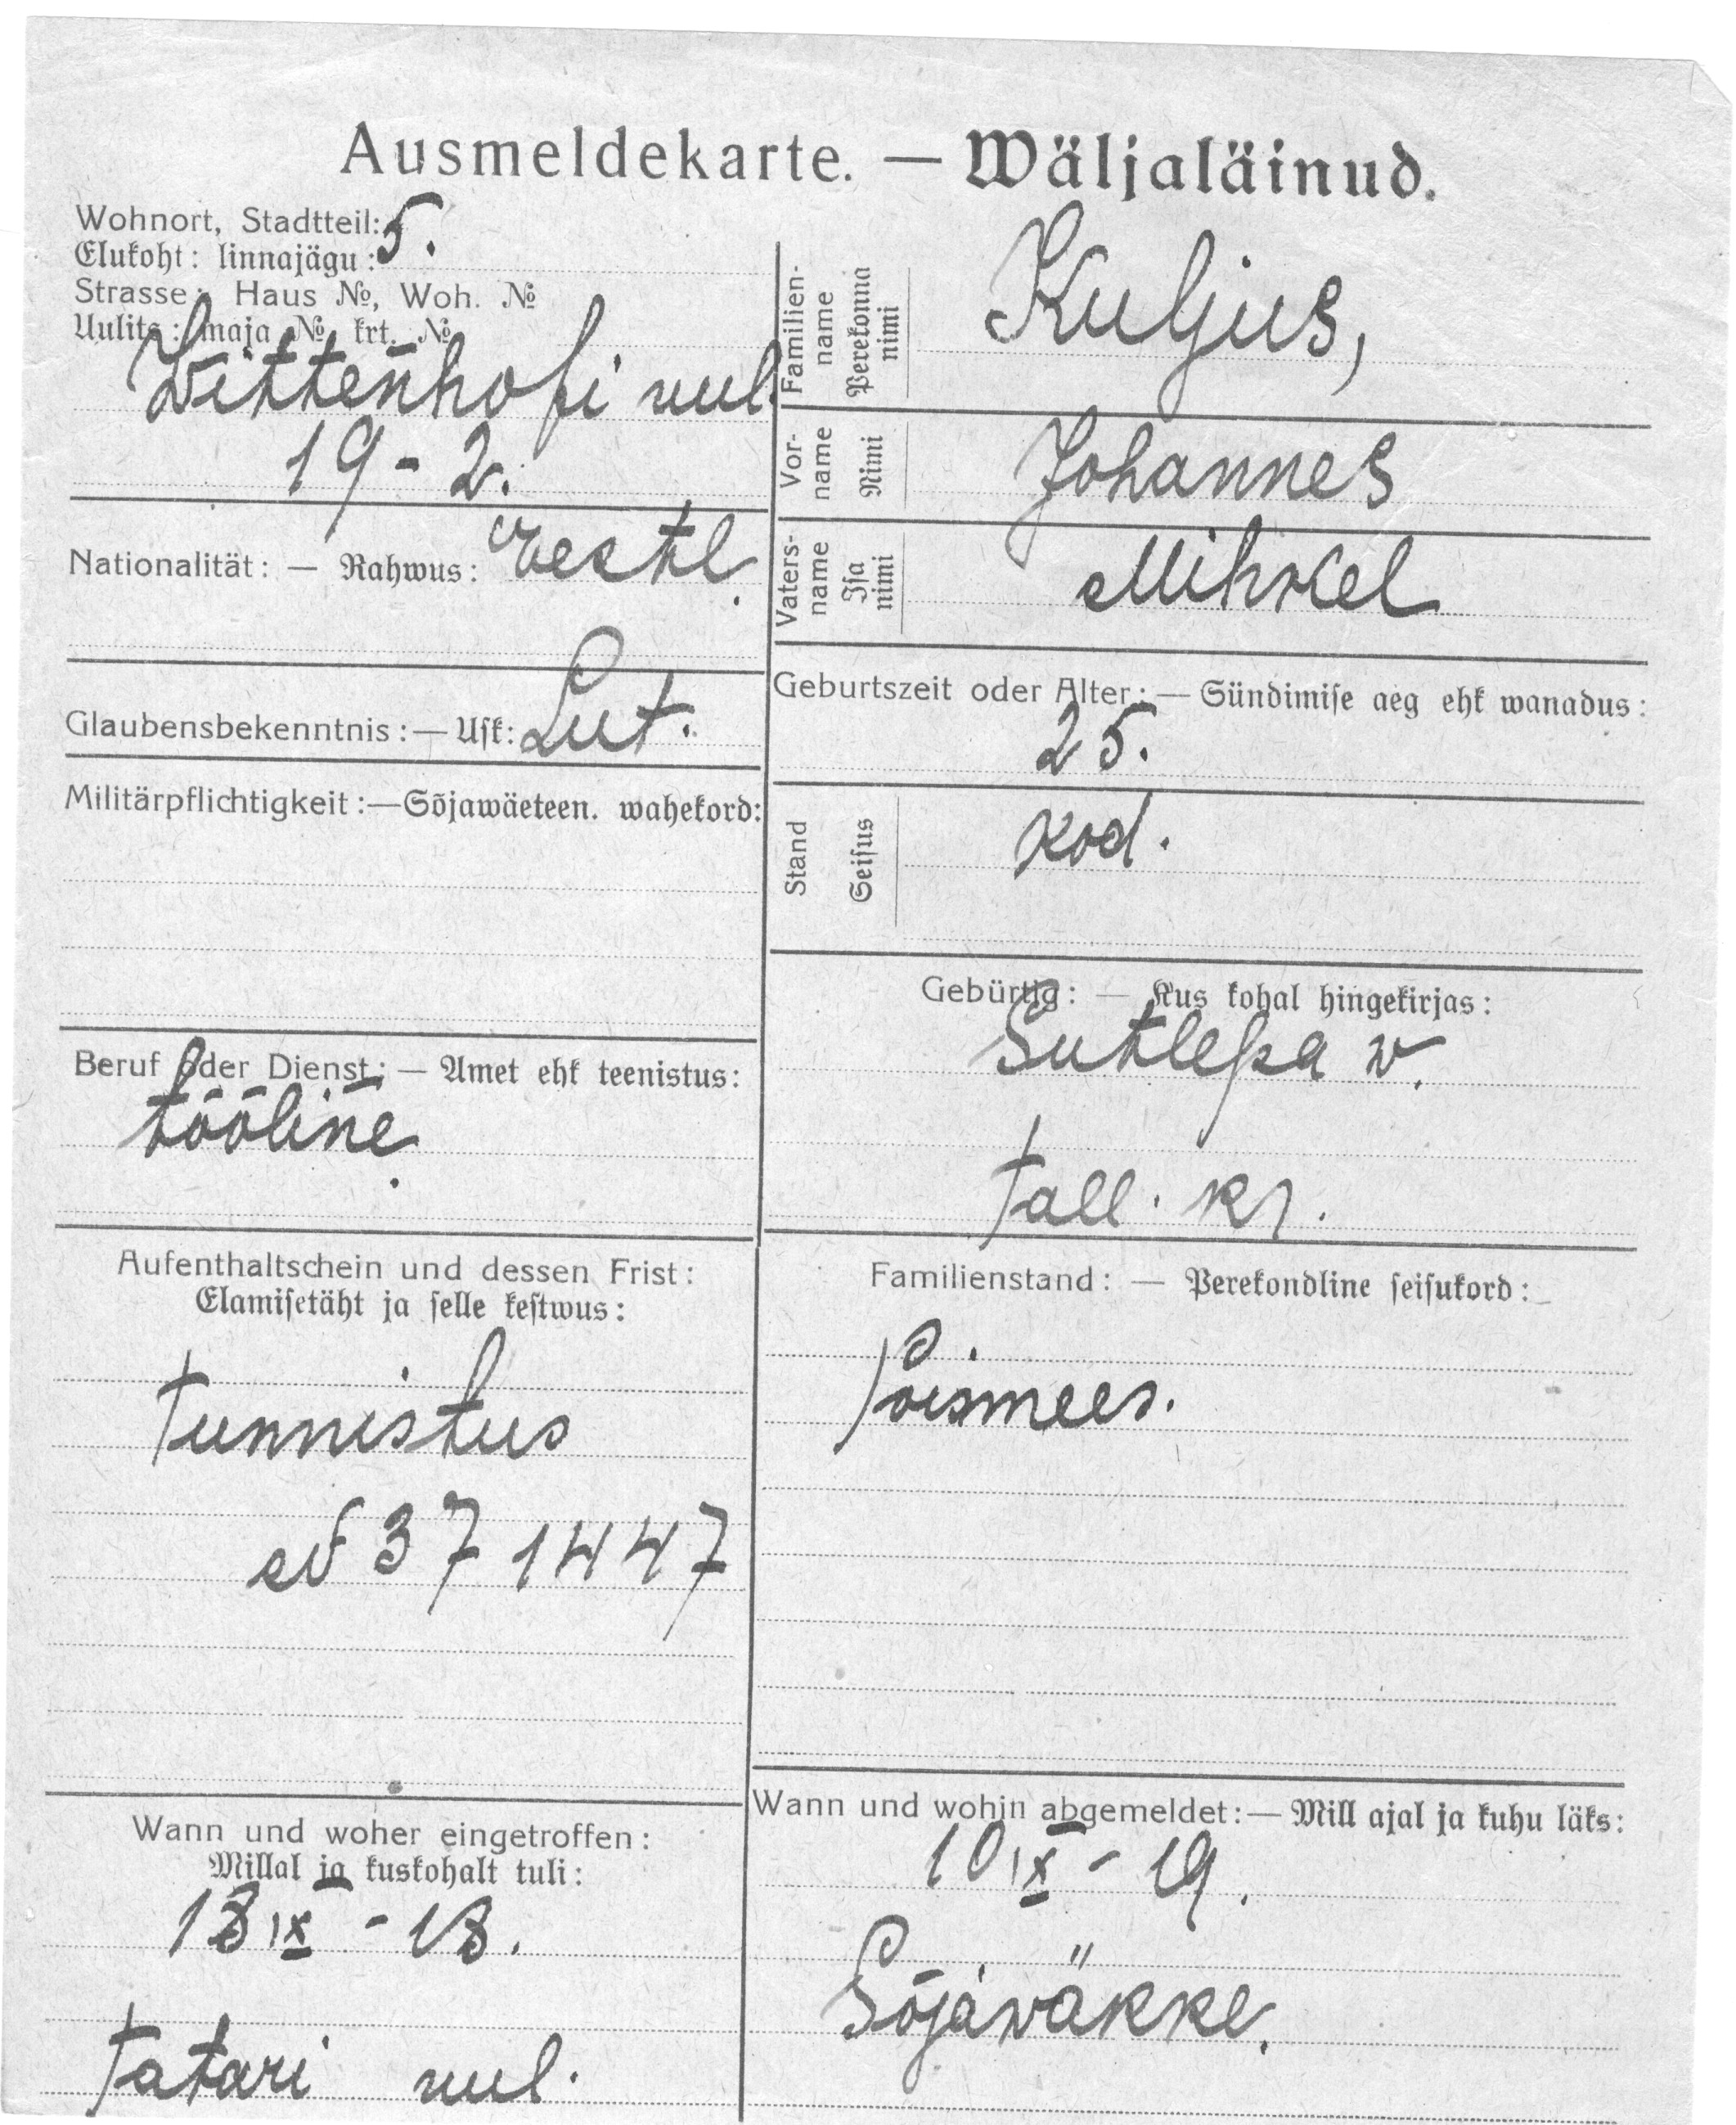 Ausmeldekarte. — Wäljaläinud.
Wohnort, Stadtteil: 5.
Elukoht: linnajägu:
Strasse: Haus №, Woh. №
Uulits: maja № krt. №
Wittenhofi uul.
19 - 2.
Familien-name Perekonna nimi
Kuljus,
Vor-name Nimi
Johannes
Vaters-name Isa nimi
Mihkel
Nationalität: — Rahwus: Eestl.
Glaubensbekenntnis: — Usk: Lut.
Militärpflichtigkeit: — Sõjawäeteen. wahekord:
Geburtszeit oder Alter: — Sündimise aeg ehk wanadus:
25.
Stand Seisus
kod.
Gebürtig: — Kus kohal hingekirjas:
Sutlepa w.
Tall. kr.
Beruf oder Dienst: — Amet ehk teenistus:
tööline.
Aufenthaltschein und dessen Frist:
Elamisetäht ja selle kestwus:
Tunnistus
№ 371447
Familienstand: — Perekondline seisukord:
Poismees.
Wann und woher eingetroffen:
Millal ja kuskohalt tuli:
18 IX - 18.
Tatari uul.
Wann und wohin abgemeldet: — Mill ajal ja kuhu läks:
10 IX - 19.
Sõjawäkke.